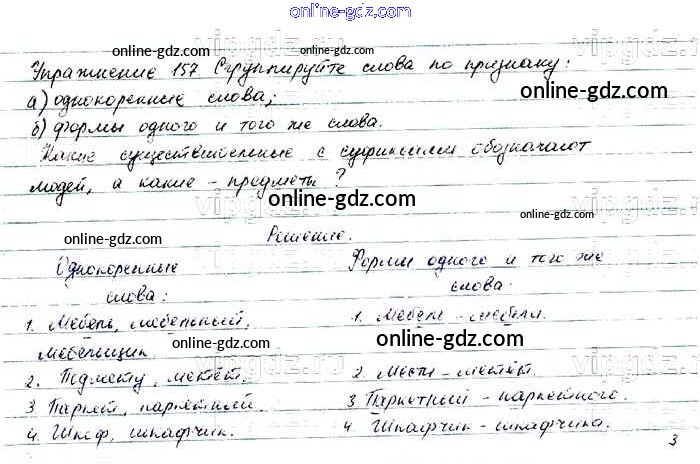 online-gdz.com
online-gdz.com
Упражнение 157 Сгруппируйте слова по признаку:
а) однокоренные слова;
online-gdz.com
б) формы одного и того же слова.
online-gdz.com
Какие существительные с суффиксами обозначают
людей, а какие - предметы?
online-gdz.com
online-gdz.com
online-gdz.com
Решение.
Однокоренные
слова:
1. Мебель, мебельный,
мебельщик.
2. Подмету, метёт.
3 Паркет, паркетный.
4. Шкаф, шкафчик.
Формы одного и того же
слова.
1. Мебель - мебели.
online-gdz.com
online-gdz.com
2. Мести - метёт.
3 Паркетный - паркетного.
4 Шкафчик - шкафчика.
online-gdz.com
3